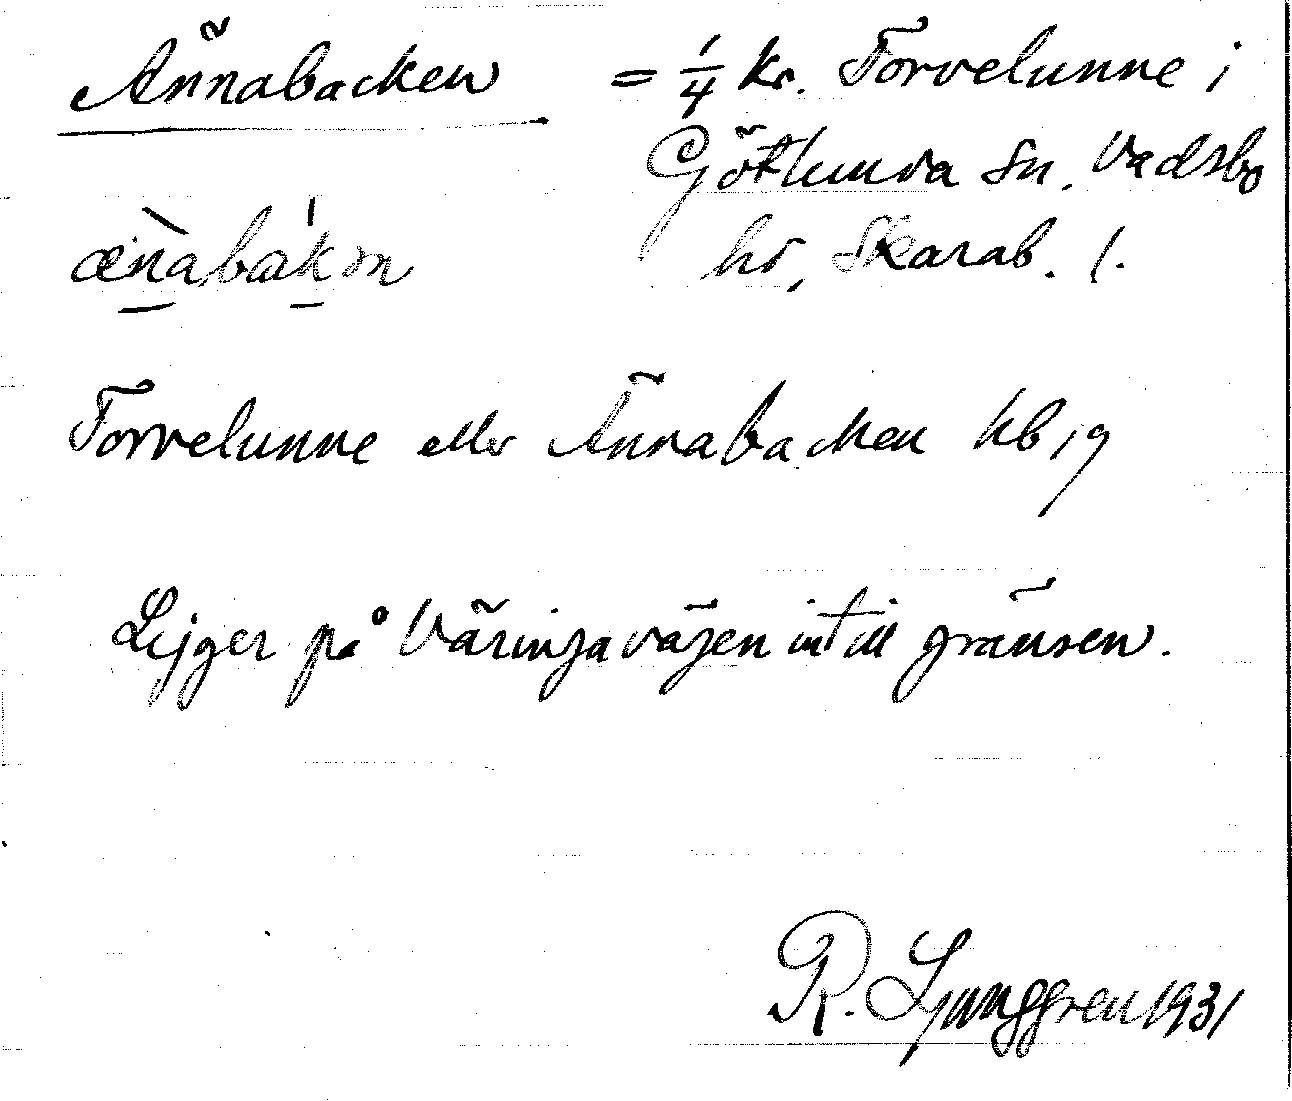 Ännabacken = 1/4 kr. Torvelunne i
Götlunda sn, Vadsbo
ænabakən hd, Skarab. l.
Torvelunne eller Ännabacken kb 19
Ligger på Väringavägen intill gränsen.
R. Ljunggren 1931